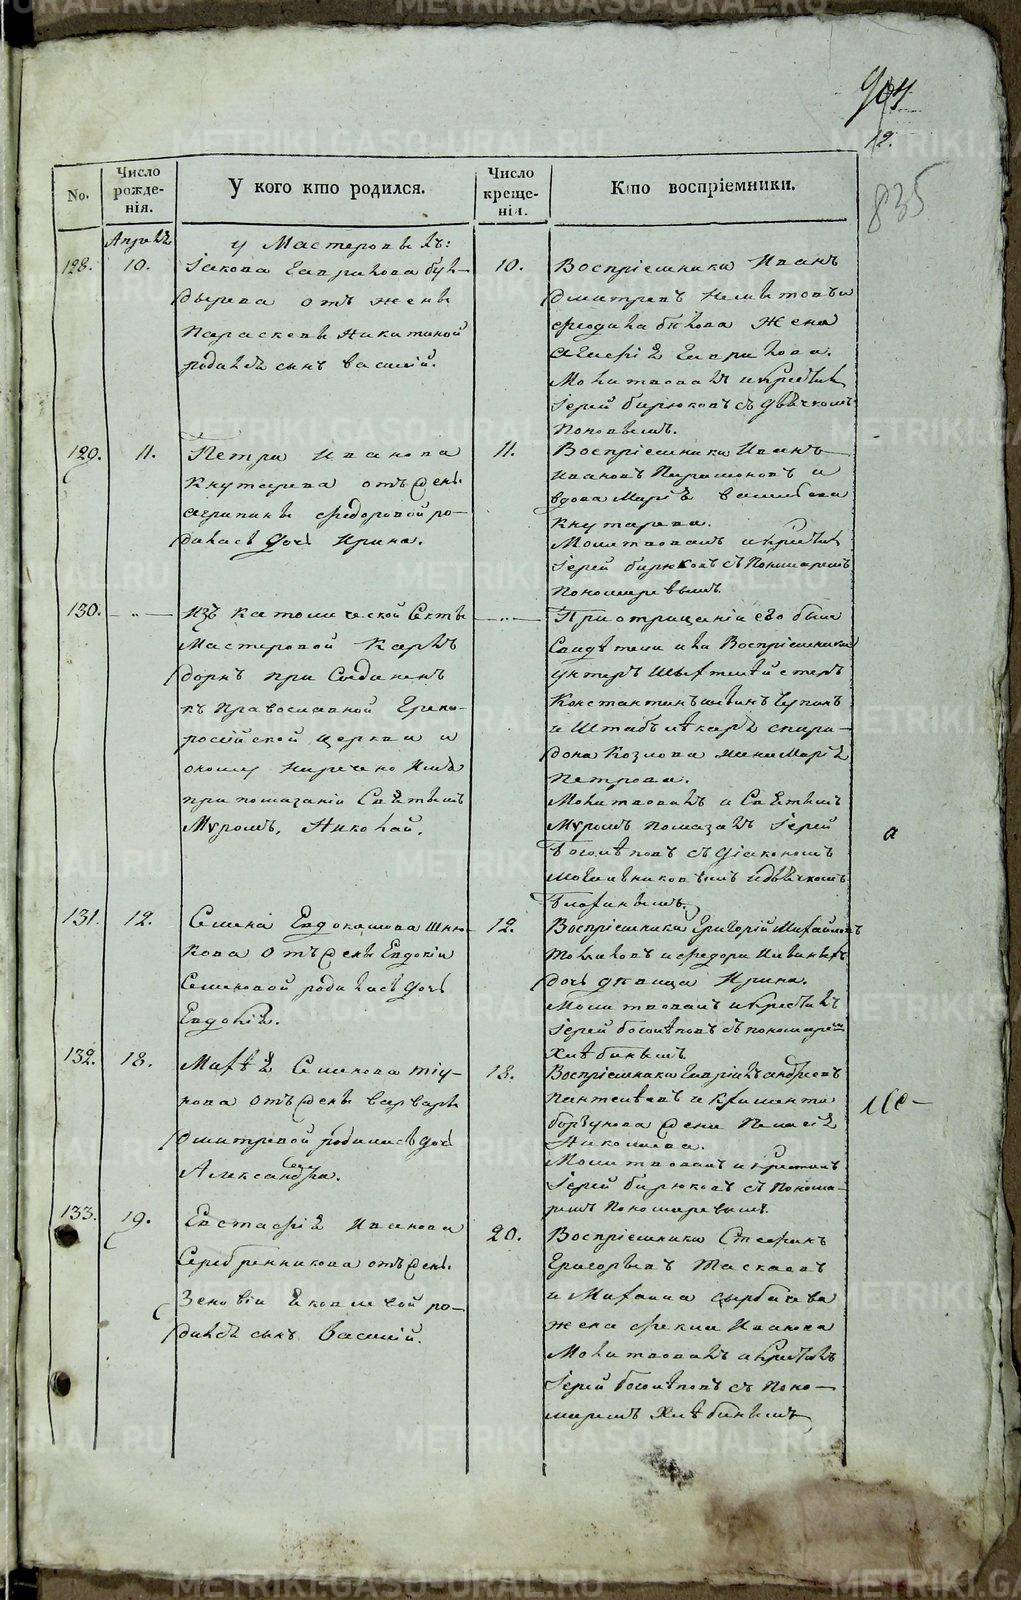 904
12.
835
No.
Число рожденія.
У кого кто родился.
Число крещенія.
Кто воспріемники.
Апрель
у Мастеровыхъ:
128.
10.
Іакова Гаврилова бул-
дырева отъ жены
Параскевы Никитиной
родился сынъ василій.
10.
Воспріемники Иванъ
Дмитревъ
жена
Гаврилова.
Молитвовалъ и крестилъ
Іерей бирюковъ съ дьячкомъ
Поповымъ.
129.
11.
Петра Иванова
Кнутарева отъ жены
агрипины федоровой ро-
дилась дочь Ирина.
11.
Воспріемники Иванъ
Ивановъ Парамоновъ и
вдова Марія васильева
Кнутарева.
Молитвовалъ и крестилъ
Іерей бирюковъ съ Пономаремъ
Пономаревымъ.
130.
— „ —
Изъ Католической Секты
Мастеровой Карлъ
дорнъ при Соединенъ
къ Православной Греко-
россійской церкви и
оному наречено Имя
при помазаніи Святымъ
Мѵромъ, Николай.
— „ —
При отрицаніи его были
Свидѣтели или Воспріемники
унтеръ Шихтмейстеръ
Константинъ
и Штабъ лѣкаря спири-
дона Козлова жена Марія
Петрова.
Молитвовалъ и Святымъ
Мѵромъ помазалъ Іерей
Боголѣповъ съ діакономъ
и дьячкомъ
131.
12.
Семена Евдокимова
кова отъ жены Евдокіи
Семеновой родилась дочь
Евдокія.
12.
Воспріемники Григорій Михайловъ
и федора
дочь дѣвица Ирина.
Молитвовалъ и крестилъ
Іерей боголѣповъ съ пономаремъ
Хлѣбинымъ.
132.
18.
Матвѣя Семенова тіу-
нова отъ жены варвары
Дмитревой родилась дочь
Александра.
18.
Воспріемники Гавріилъ андреевъ
Пантелѣевъ и Климента
борзунова жена Пелагія
Николаева.
Молитвовалъ и крестилъ
Іерей бирюковъ съ Понома-
ремъ Пономаревымъ.
133.
19.
Евстафія Иванова
Серебренникова отъ жены
Зеновіи Яковлевой ро-
дился сынъ Василій.
20.
Воспріемники Стефанъ
Григорьевъ Таскаевъ
и Михаила
жена фекла Иванова
Молитвовалъ и крестилъ
Іерей боголѣповъ съ Поно-
маремъ Хлѣбинымъ
а
METRIKI.GASO-URAL.RU